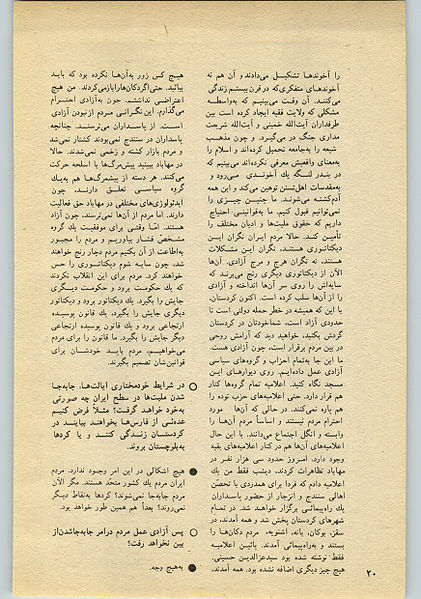 را آخوندها تشکیل می‌دادند و آن هم نه
آخوندهای متفکری که در قرن بیستم زندگی
می‌کنند. آن وقت می‌بینیم که به‌واسطه
مشکلی که ولایت فقیه ایجاد کرده است بین
طرفداران آیت‌الله خمینی و آیت‌الله شریعت
مداری جنگ در می‌گیرد. و چون مذهب
شیعه را به‌جامعه تحمیل کرده‌اند و اسلام را
به‌معنای واقعیش معرفی نکرده‌اند می‌بینیم که
در بندر لنگه یك آخوندی می‌رود و
به‌مقدسات اهل‌تسنن توهین می‌کند و این همه
آدم کشته می‌شوند. ما چنین چیزی را
نمی‌توانیم قبول کنیم. ما به‌قوانینی احتیاج
داریم که حقوق ملیت‌ها و ادیان مختلف را
تأمین کند. حالا مردم ایران نگران این
دیکتاتوری هستند، نگران این مشکلات
هستند، نه نگران هرج و مرج آزادی. آن‌ها
الآن از دیکتاتوری دیگری رنج می‌برند که
سایه‌اش را روی سر آن‌ها انداخته و آزادی
را از آن‌ها سلب کرده است. اکنون کردستان،
با این که همیشه در خطر حمله دولتی است تا
حدودی آزاد است، شماخودتان در کردستان
گردش بکنید، خواهید دید که آرامش روحی
در بین مردم برقرار است، چون آزادی هست.
ما این جا به‌تمام احزاب و گروه‌های سیاسی
آزادی عمل داده‌ایم. روی دیوارهای این
مسجد نگاه کنید. اعلامیه تمام گروه‌ها کنار
هم قرار دارد. حتی اعلامیه‌های حزب توده را
هم پاره نمی‌کنند. در حالی که آن‌ها مورد
احترام مردم نیستند و اساساً مردم آن‌ها را
وابسته و انگل اجتماع می‌دانند. با این حال
اعلامیه‌های آن‌ها هم کنار اعلامیه‌های بقیه
وجود دارد. امروز حدود سی هزار نفر در
مهاباد تظاهرات کردند، دیشب فقط من یك
اعلامیه دادم که فردا برای همدردی با تحصّن
اهالی سنندج و انزجار از حضور پاسداران
یك راه‌پیمائی برگزار خواهد شد. در تمام
شهرهای کردستان پخش شد و همه آمدند، در
سقز، بوکان، بانه، اشنویه، مردم دکان‌ها را
بستند و به‌راه‌پیمائی آمدند. پائین اعلامیه
فقط نوشته شده بود سیدعزالدین حسینی.
هیچ چیز دیگری اضافه نشده بود. همه آمدند،
هیچ کس زور به‌آن‌ها نکرده بود که باید
بیائید. حتی اگر دکان‌ها را باز می‌کردند. من هیچ
اعتراضی نداشتم. چون به‌آزادی احترام
می‌گذارم. این نگرانی مردم از نبودن آزادی
است. از پاسداران می‌ترسند. چنانچه
پاسداران در سنندج نمی‌بودند کشتار نمی‌شد
و مردم بازار کشته و زخمی نمی‌شدند. حالا
در مهاباد ببینید پیش‌مرگ‌ها با اسلحه حرکت
می‌کنند. هر دسته از پیشمرگ‌ها هم به‌یك
گروه سیاسی تعلق دارند، چون
ایدئولوژی‌های مختلفی در مهاباد حق فعالیت
دارند. اما مردم از آن‌ها نمی‌ترسند، چون آزاد
هستند. اما وقتی برای موفقیت یك گروه
مشخّص فشار بیاوریم و مردم را مجبور
به‌اطاعت از آن بکنیم مردم دچار رنج خواهند
شد، چون سایه شوم دیکتاتوری را حس
خواهند کرد. مردم برای این انقلاب نکردند
که یك حکومت برود و حکومت دیگری
جایش را بگیرد. یك دیکتاتور برود و دیکتاتور
دیگری جایش را بگیرد. یك قانون پوسیده
ارتجاعی برود و یك قانون پوسیده ارتجاعی
دیگر جایش را بگیرد. ما قانون را برای مردم
می‌خواهیم. مردم باید خودشان برای
قوانین‌شان تصمیم بگیرند.
○ در شرایط خودمختاری ایالت‌ها، جابه‌جا
شدن ملیت‌ها در سطح ایران چه صورتی
به‌خود خواهد گرفت؟ مثلاً فرض کنیم
عده‌ئی از فارس‌ها بخواهند بیایند در
کردستان زندگی کنند، و یا کردها
به‌بلوچستان بروند.
● هیچ اشکالی در این امر وجود ندارد. مردم
ایران مردم یك کشور متحّد هستند. مگر الآن
مردم جابه‌جا نمی‌شوند؟ کردها به‌نقاط دیگر
نمی‌روند؟ بعداً هم همین طور خواهد بود.
○ پس آزادی عمل مردم درامر جابه‌جاشدن‌از
بین نخواهد رفت؟
● به‌هیچ وجه.
۲۰